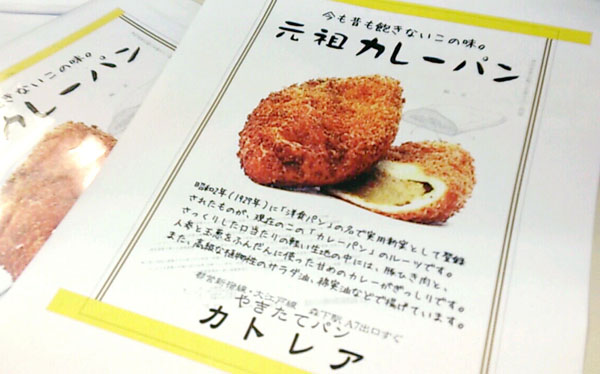 今も昔も飽きないこの味。
元祖カレーパン
昭和2年(1927年)に「洋食パン」の名で実用新案として登録
されたものが、現在のこの「カレーパン」のルーツです。
さっくりした口当たりの軽い生地の中には、豚ひき肉と、
人参と玉葱をふんだんに使った甘めのカレーがぎっしりです。
また、高級な植物性のサラダ油、綿実油などで揚げています。
都営新宿線・大江戸線 森下駅 A7出口すぐ
やきたてパン
カトレア
飽きないこの味。
カレーパン